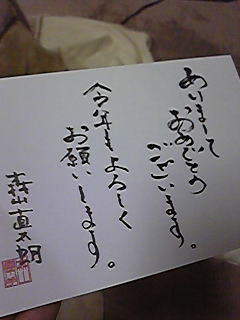 あけまして
おめでとう
ございます。
今年も よろしく
お願いします。
森山直太朗